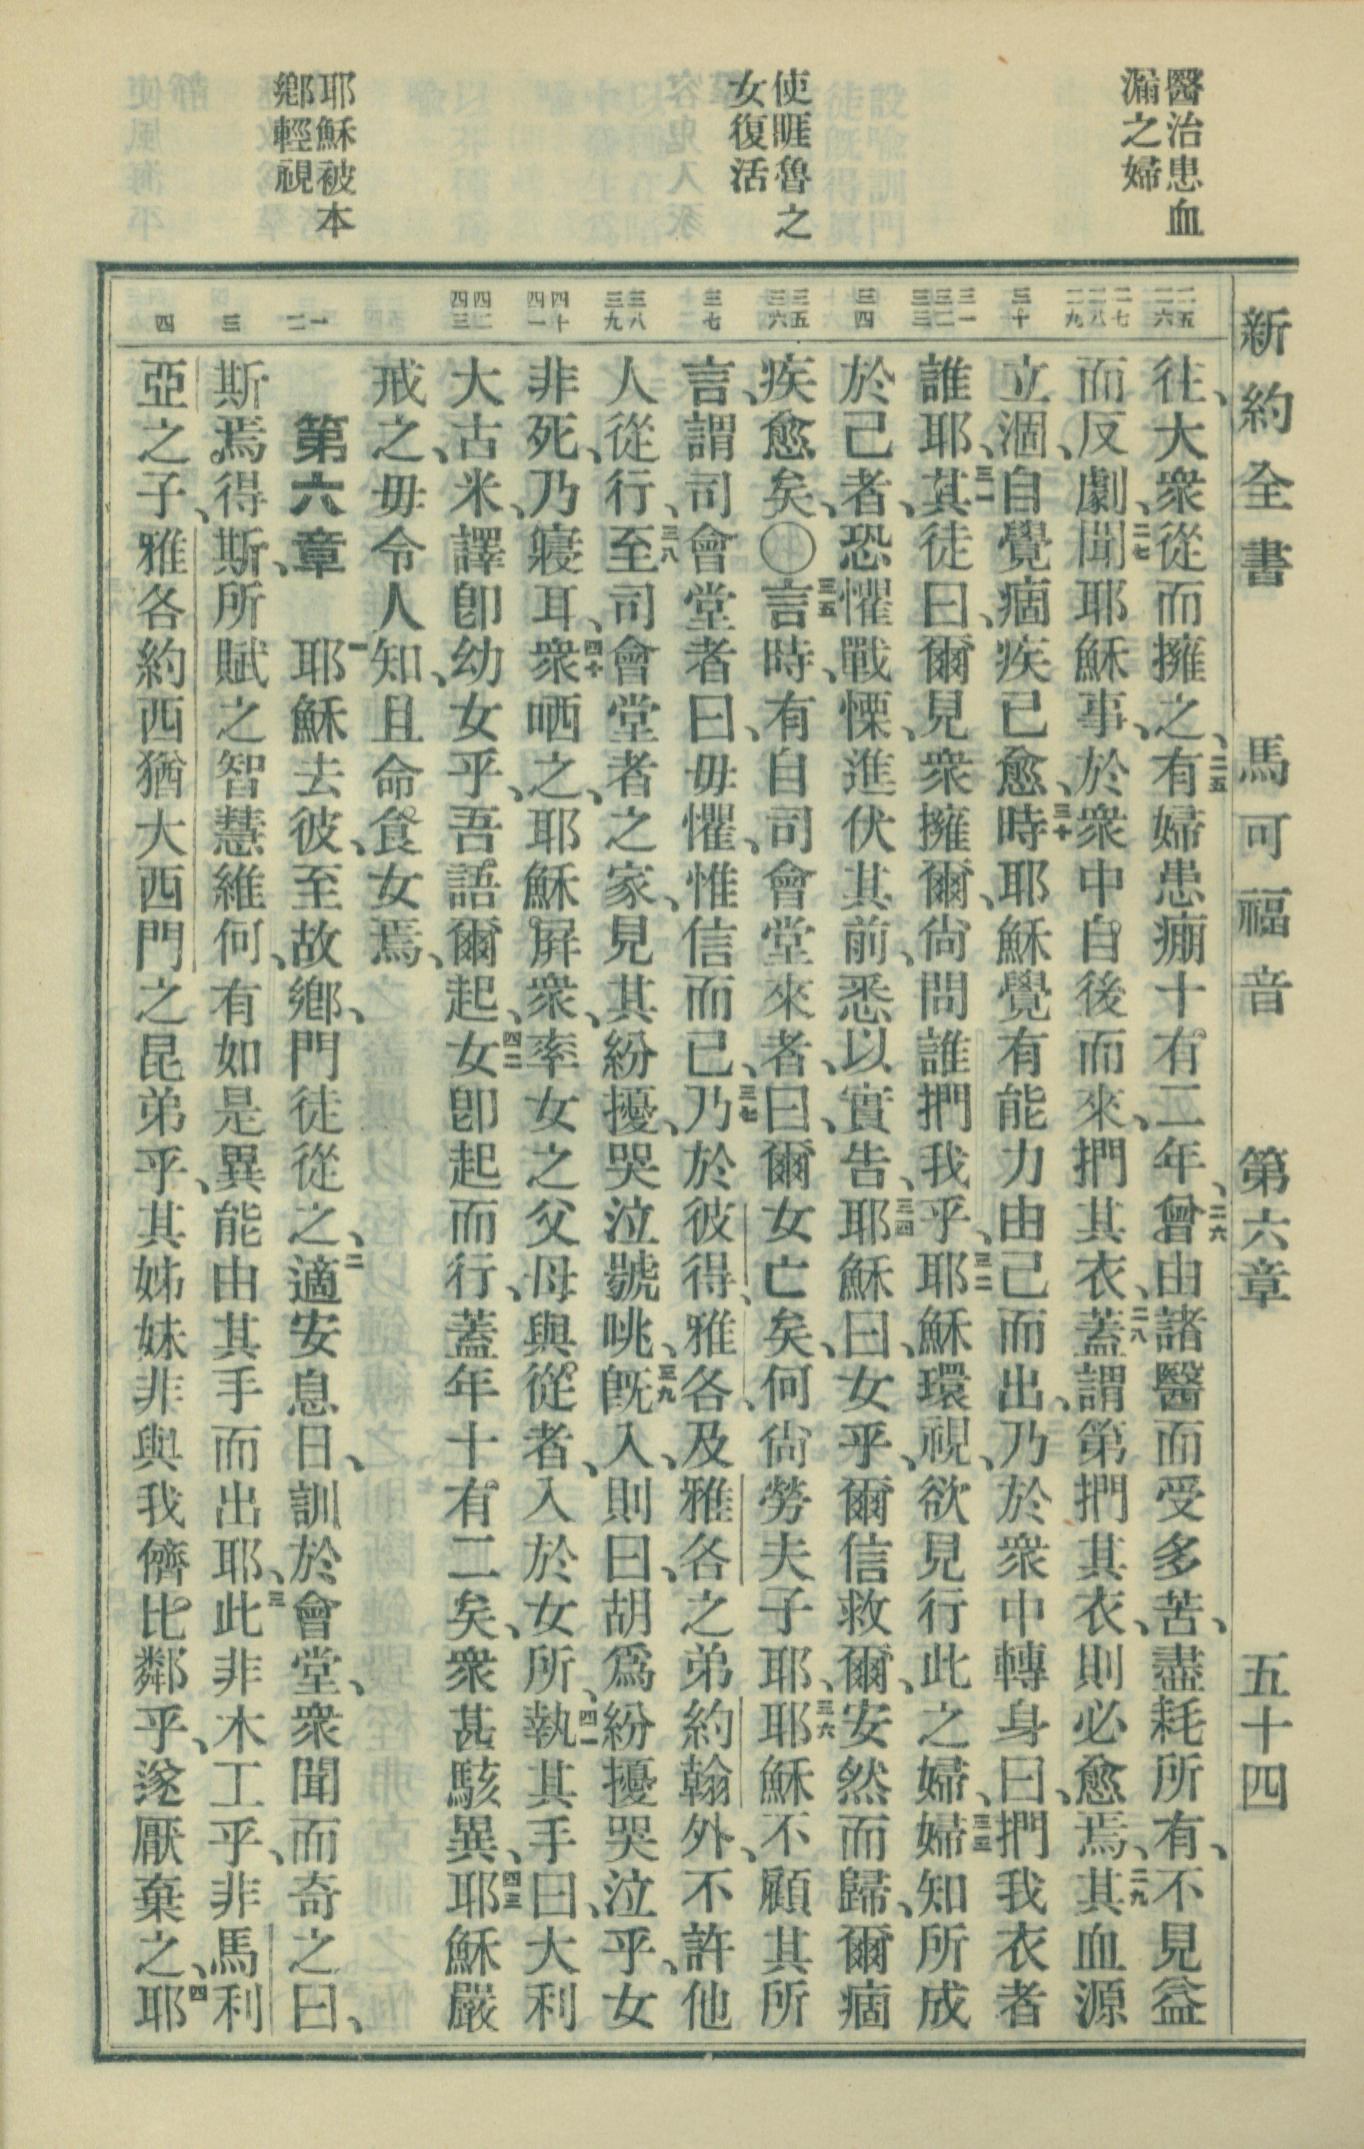 新約全書　馬可福音　第六章　五十四
醫治患血
漏之婦
使睚魯之
女復活
耶穌被本
鄉輕視
二五
二六
二七
二八
二九
三十
三一
三二
三三
三四
三五
三六
三七
三八
三九
四十
四一
四二
四三
一
二
三
四
往、大衆從而擁之、二五有婦患痳十有二年、二六曾由諸醫而受多苦、盡耗所有、不見益
而反劇、二七聞耶穌事、於衆中自後而來、捫其衣、二八蓋謂第捫其衣、則必愈焉、二九其血源
立涸、自覺痼疾已愈、三十時耶穌覺有能力由己而出、乃於衆中轉身曰、捫我衣者
誰耶、三一其徒曰、爾見衆擁爾、尙問誰捫我乎、三二耶穌環視、欲見行此之婦、三三婦知所成
於己者、恐懼戰慄、進伏其前、悉以實告、三四耶穌曰、女乎、爾信救爾、安然而歸、爾痼
疾愈矣、〇三五言時、有自司會堂來者、曰、爾女亡矣、何尙勞夫子耶、三六耶穌不顧其所
言、謂司會堂者曰、毋懼、惟信而已、三七乃於彼得、雅各、及雅各之弟約翰外、不許他
人從行、三八至司會堂者之家、見其紛擾、哭泣號咷、三九旣入、則曰、胡爲紛擾哭泣乎、女
非死、乃寢耳、四十衆哂之、耶穌屏衆、率女之父母與從者、入於女所、四一執其手曰、大利
大古米、譯卽幼女乎、吾語爾起、四二女卽起而行、蓋年十有二矣、衆甚駭異、四三耶穌嚴
戒之、毋令人知、且命食女焉、
第六章　一耶穌去彼、至故鄉、門徒從之、二適安息日、訓於會堂、衆聞而奇之曰、
斯焉得斯、所賦之智慧維何、有如是異能由其手而出耶、三此非木工乎、非馬利
亞之子、雅各約西猶大西門之昆弟乎、其姊妹非與我儕比鄰乎、遂厭棄之、四耶